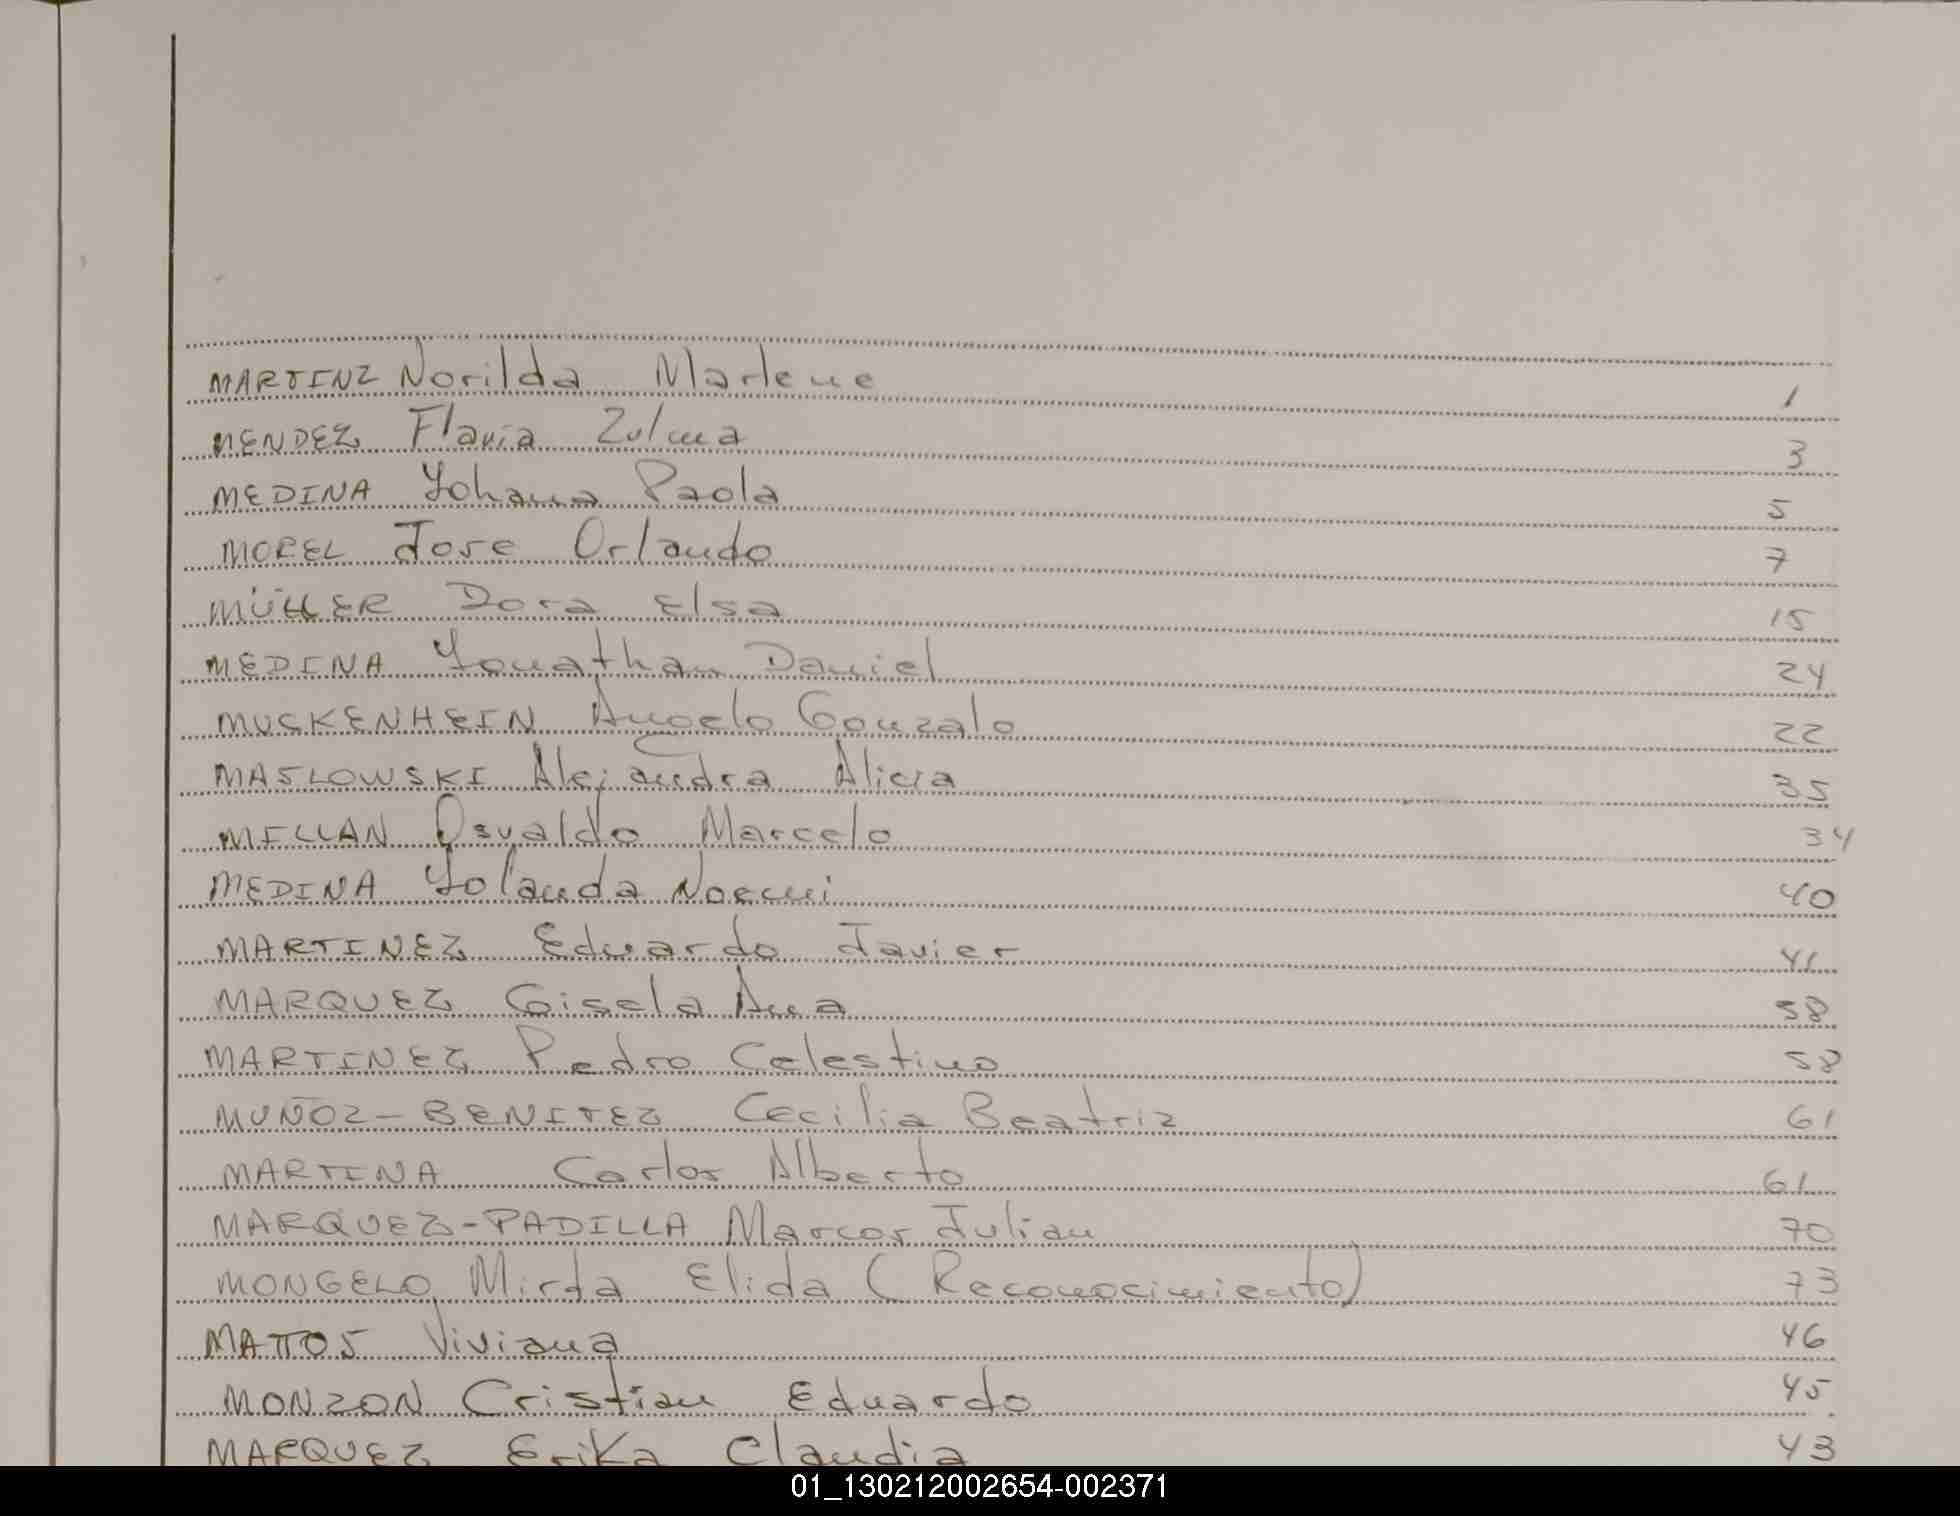 MARTINZ Norilda Marlene 1
MENDEZ Flavia Zulma 3
MEDINA Yohana Paola 5
MOREL Jose Orlando 7
MÜLLER Dora Elsa 15
MEDINA Yonathan Daniel 24
MUSKENHEIN Angelo Gonzalo 22
MASLOWSKI Alejandra Alicia 35
MILLAN Osvaldo Marcelo 34
MEDINA Yolanda Noemi 40
MARTINEZ Eduardo Javier 41
MARQUEZ Gisela Ana 58
MARTINEZ Pedro Celestino 58
MUÑOZ-BENITEZ Cecilia Beatriz 61
MARTINA Carlos Alberto 61
MARQUEZ-PADILLA Marcos Julian 70
MONGELO Mirta Elida (Reconocimiento) 73
MATTOS Viviana 46
MONZON Cristian Eduardo 45
MARQUEZ Erika Claudia 43
01_130212002654-002371